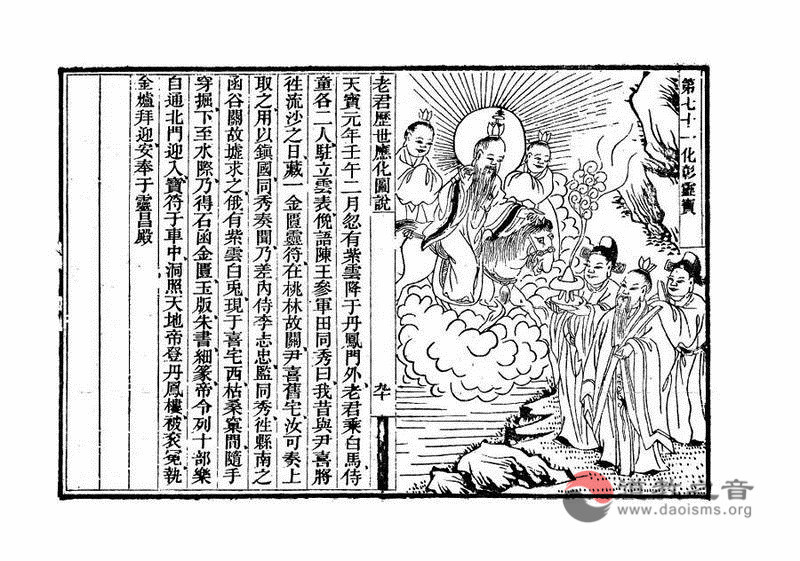 第七十一化彰靈寶
老君歷世應化圖說
九十
天寶元年壬午二月忽有紫雲降于丹鳳門外老君乘白馬侍
童各二人駐立雲表俛語陳王參軍田同秀曰我昔與尹喜將
徃流沙之日藏一金匱靈符在桃林故關尹喜舊宅汝可奏上
取之用以鎮國同秀奏聞乃差內侍李志忠監同秀徃縣南之
函谷關故墟求之俄有紫雲白兎現于喜宅西枯桑窠間隨手
穿掘下至水際乃得石函金匱玉版朱書細篆帝令列十部樂
自通北門迎入寶符于車中洞照天地帝登丹鳳樓被袞冕執
金爐拜迎安奉于靈昌殿
道教之音
www.daoisms.org